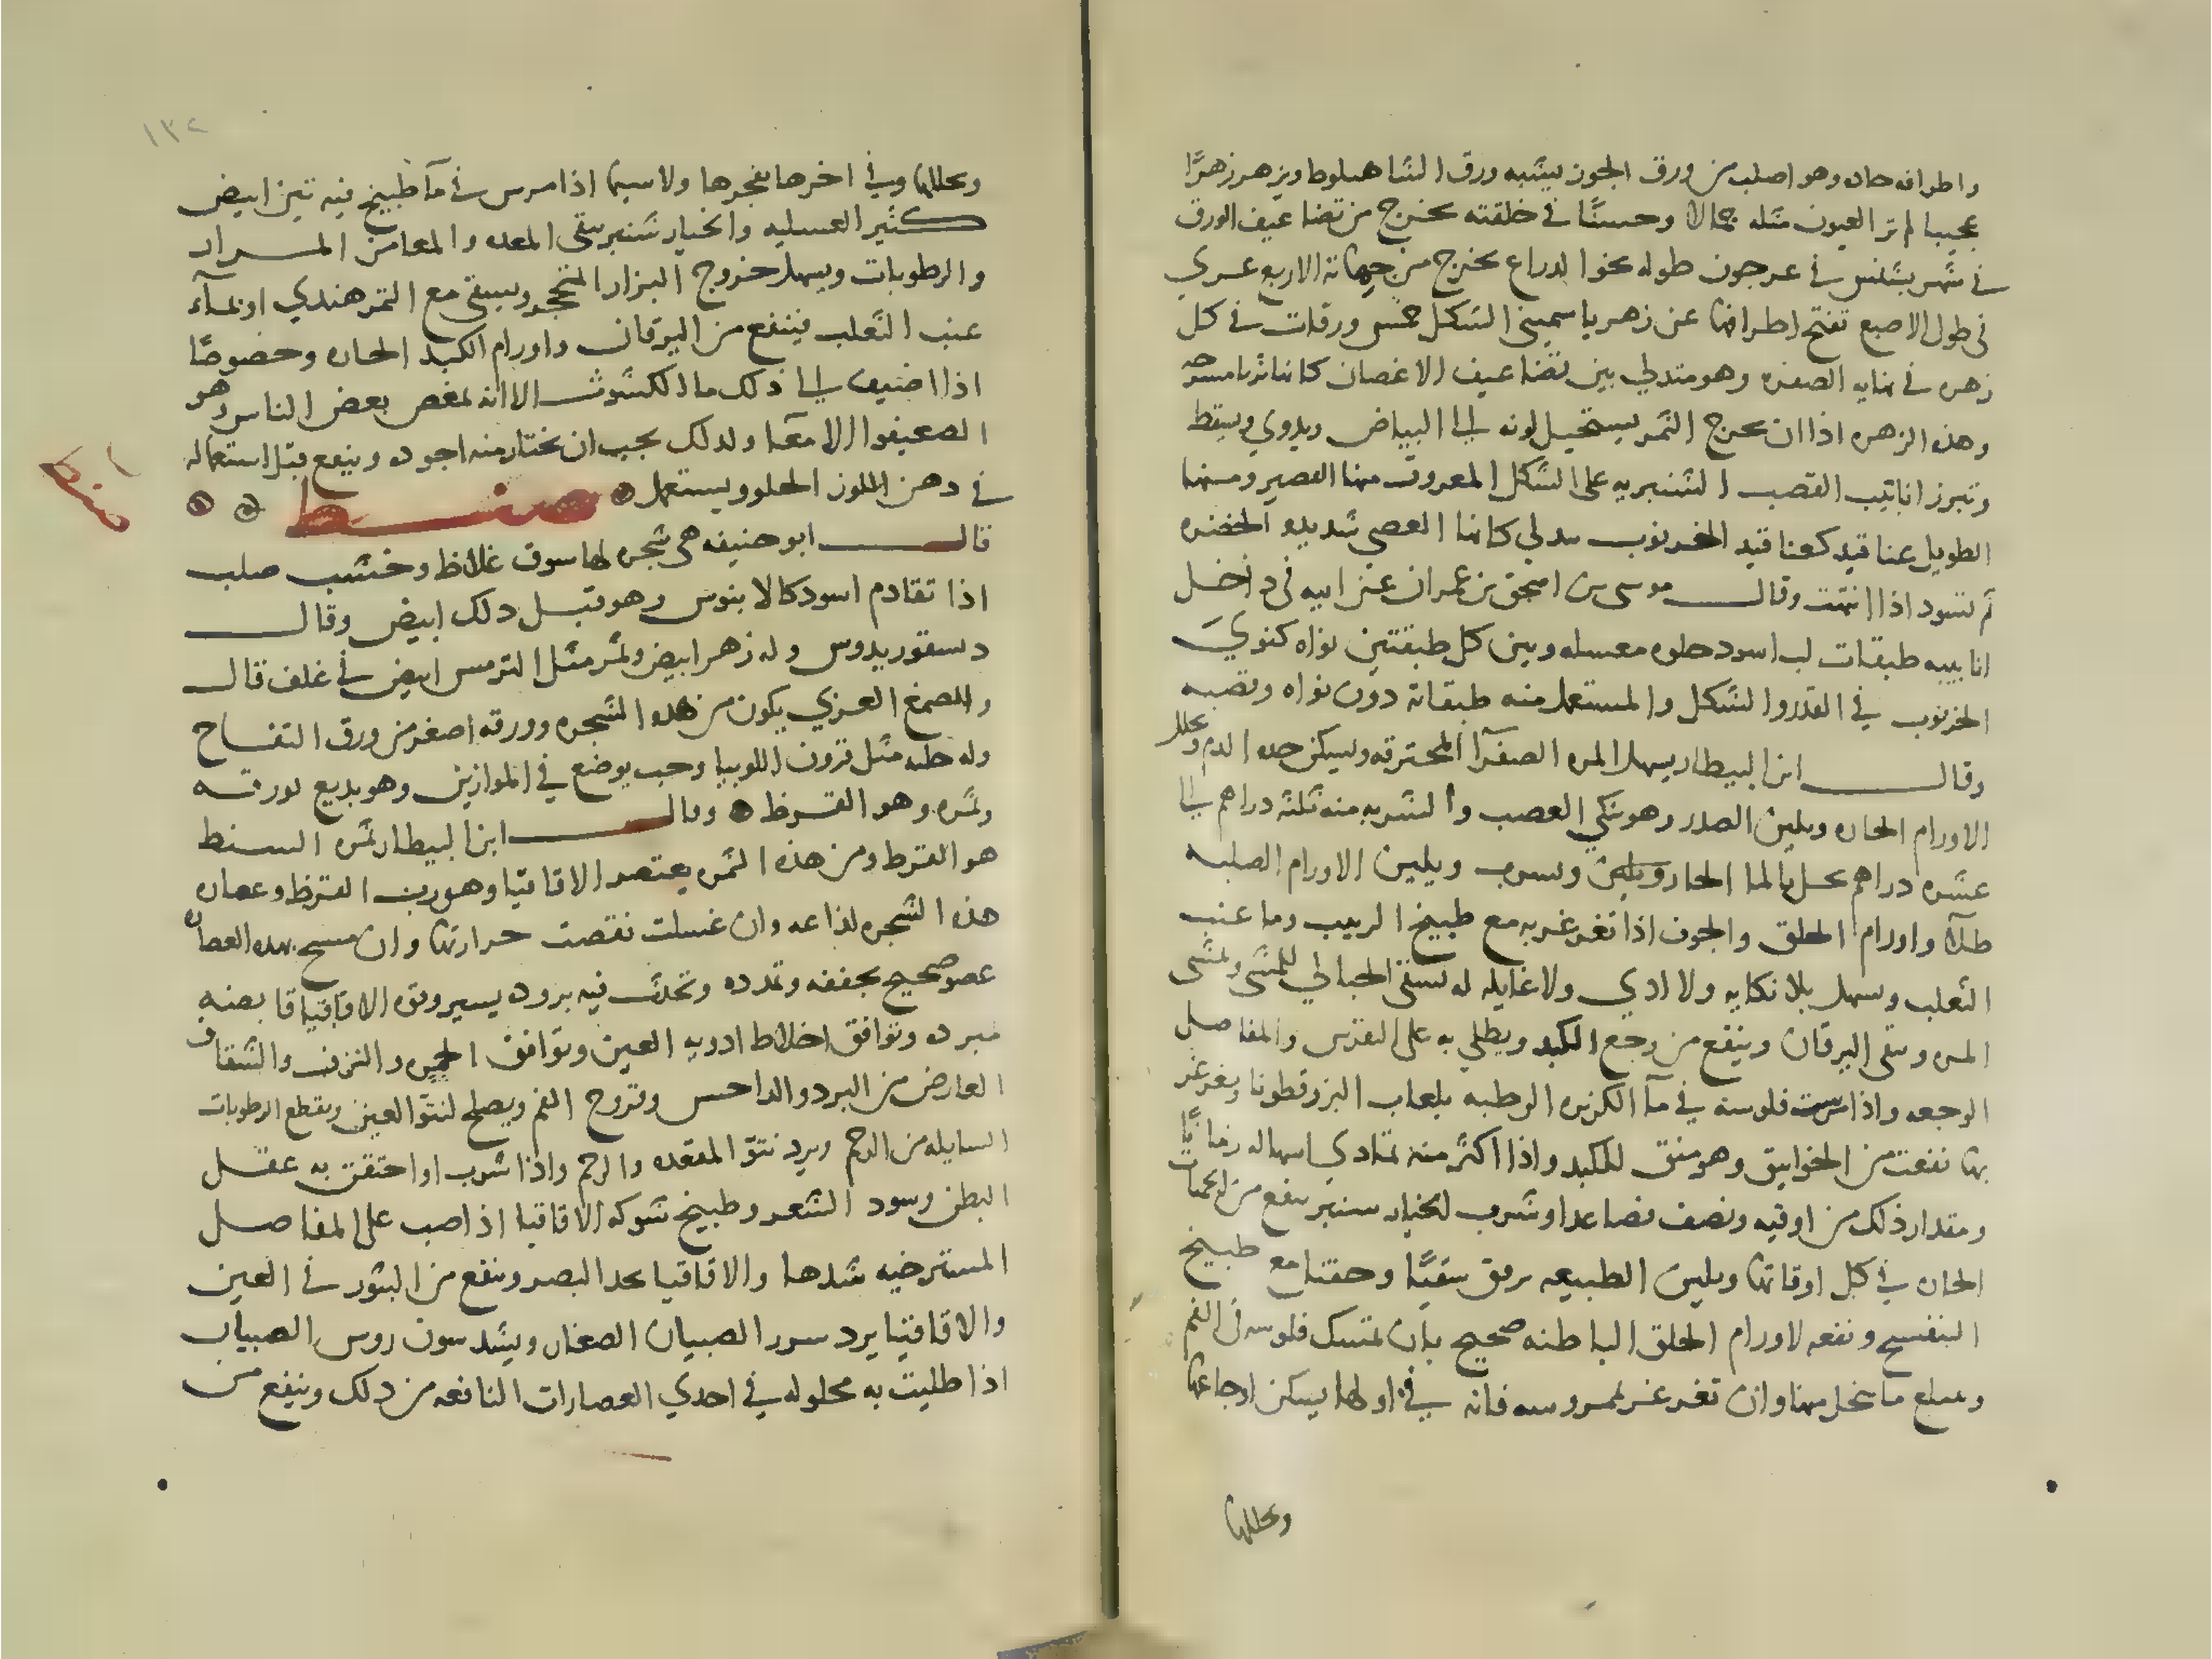 واطرافه حاده وهو اصلب من ورق الجوز يشبه ورق الشاهبلوط ويزهر زهرًا
عجيبا لم تر العيون مثله جمالا وحسنًا في خلقته يخرج من تضاعيف الورق
في شهر بشنس في عرجون طوله نحوا لدراع يخرج من جهاته الاربع عري
في طول الاصبع تفتح اطرافها عن زهر ياسميني الشكل خمس ورقات في كل
زهره في نهايه الصفره وهو متدلي بين تضاعيف الاغصان كانها ثريا مسرجه
وهذه الزهره اذا ان يخرج الثمر يستحيل لونه الي البياض ويدوي ويسقط
وتبرز انابيب القصب الشنبريه على الشكل المعروف منها القصير ومنها
الطويل عناقيد كعناقيد الخرنوب مدلي كانها العصي شديده الخضره
ثم تسود اذا انتهت وقال موسى بن اسحق بن عمران عن ابيه في داخل
انابيبه طبقات لب اسود حلوه معسله وبين كل طبقتين نواه كنوي
الخرنوب في القدر والشكل والمستعمل منه طبقاته دون نواه وقصبه
وقال ابن البيطار يسهل المره الصفرآ المحترقه ويسكن حده الدم ويحلل
الاورام الحاره ويلين الصدر وهو ينكي العصب والشربه منه ثلثه دراهم الي
عشره دراهم يحل بالما الحار ويلين ويسرب ويلين الاورام الصلبه
طلآ واورام الحلق والجوف اذا تغرغر به مع طبيخ الزبيب وما عنب
الثعلب ويسهل بلا نكايه ولا ادي ولا غايله له تسقى الحبالي للمشى ويمشى
المره وينقى اليرقان وينفع من وجع الكبد ويطلي به على النقرس والمفاصل
الوجعه واذا مرست فلوسه في مآ الكزبره الرطبه بلعاب البزرقطونا ويغرغر
بها نفعت من الخوانيق وهو منق للكبد واذا اكثر منه تمادي اسهاله زمانًا
ومقدار ذلك من اوقيه ونصف فصاعدا وشرب الخيار شنبر ينفع من الحميات
الحاره في كل اوقاتها ويلين الطبيعه برفق سقيًا وحقنا مع طبيخ
البنفسج ونفعه لاورام الحلق الباطنه صحيح بان تمسك فلوسه في الفم
ويبلع ما ينحل منها وان تغرغر بممروسه فانه في اولها يسكن اوجاعها
ويحللها
١٣٢
ويحللها وفي اخرها يفجرها ولا سيما اذا مرس في مآ طبيخ فيه تين ابيض
كثير العسليه والخيار شنبر ينقى المعده والمعا من المرار
والرطوبات ويسهل خروج البزار المتحجر ويسقى مع التمر هندي او بمآء
عنب الثعلب فينفع من اليرقان واورام الكبد الحاره وخصوصًا
اذا اضيف الي ذلك ما الكشوث الا انه يمغص بعض الناس وهو
الضعيفوا الامعآ ولدلك يجب ان يختار منه اجوده وينقع قبل استعماله
في دهن اللوز الحلو ويستعمل صنط
صنط
قال ابو حنيفه هي شجره لها سوق غلاظ وخشب صلب
اذا تقادم اسود كالابنوس وهو قبل دلك ابيض وقال
دسقوريدوس وله زهر ابيض وثمر مثل الترمس ابيض في غلف قال
والصمغ العربي يكون من هذه الشجره وورقه اصغر من ورق التفاح
وله حبله مثل قرون اللوبيا وحب يوضع في الموازين وهو يدبغ بورقه
وثمره وهو القرظ وقال ابن البيطار ثمره السنط
هو القرظ ومن هذه الثمره يعتصر الاقاقيا وهو رب القرظ وعصاره
هذه الشجره لذاعه وان غسلت نقصت حرارتها وان مسح بهذه العصاره
عضو صحيح تجففه وتمدده وتحدث فيه بروده يسير وقوه الاقاقيا قابضه
مبرده وتوافق اخلاط ادويه العين وتوافق الحمره والنزف والشقاق
العارض من البرد والداحس وقروح الفم ويصلح لنتو العين ويقطع الرطوبات
السايله من الرحم ويرد نتو المقعده والرحم واذا شرب او احتقن به عقل
البطن وسود الشعر وطبيخ شوكه الاقاقيا اذا صب على المفاصل
المسترخيه شدها والاقاقيا يحد البصر وينفع من البثور في العين
والاقاقيا يرد سرر الصبيان الصغار ويشد سون روس الصبيان
اذا طليت به محلوله في احدي العصارات النافعه من دلك وينفع من